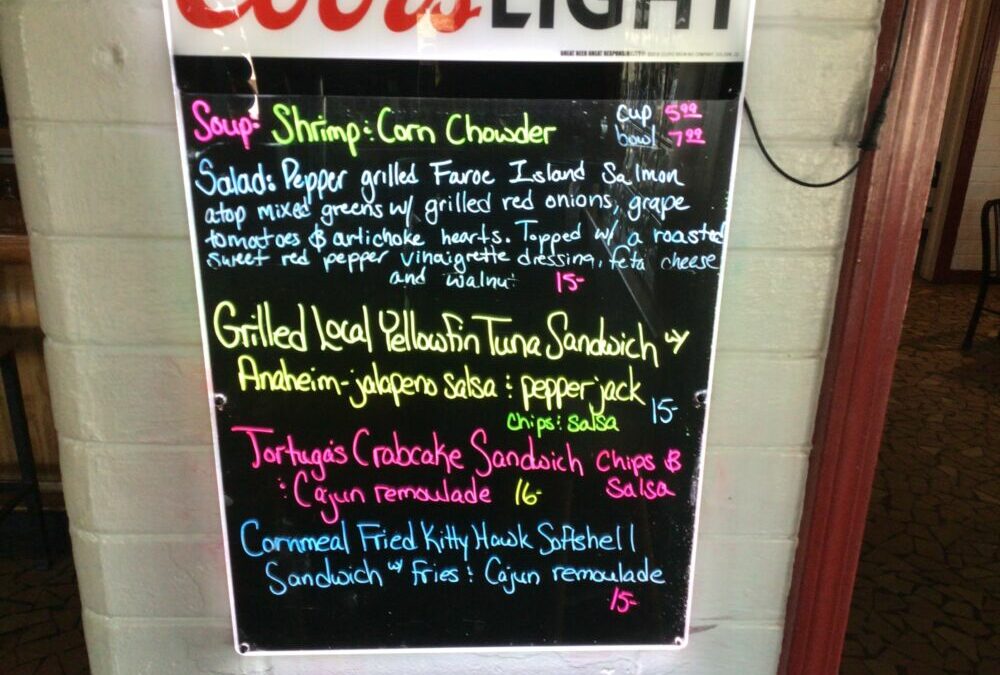 Coors LIGHT
GREAT BEER GREAT RESPONSIBILITY
Soup- Shrimp : Corn Chowder cup 5.99
bowl 7.99
Salad: Pepper grilled Faroe Island Salmon
atop mixed greens w/ grilled red onions, grape
tomatoes & artichoke hearts. Topped w/ a roasted
sweet red pepper vinaigrette dressing, feta cheese
and walnut 15-
Grilled Local Yellowfin Tuna Sandwich w/
Anaheim-jalapeno salsa : pepper jack 15-
chips : salsa
Tortuga's Crabcake Sandwich chips &
: Cajun remoulade 16- salsa
Cornmeal Fried Kitty Hawk Softshell
Sandwich w/ fries : Cajun remoulade
15-